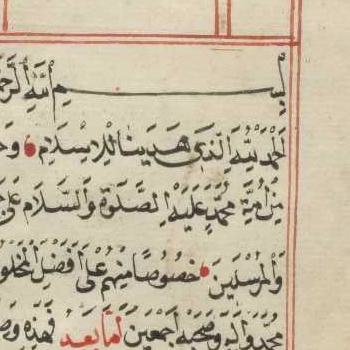 بسم الله الرحم
الحمد لله الذي هدينا للاسلام وج
من امة محمد عليه الصلوة والسلام على
والمرسلين خصوصا منهم على افضل المخلو
محمد واله وصحبه اجمعين اما بعد فهذه وص